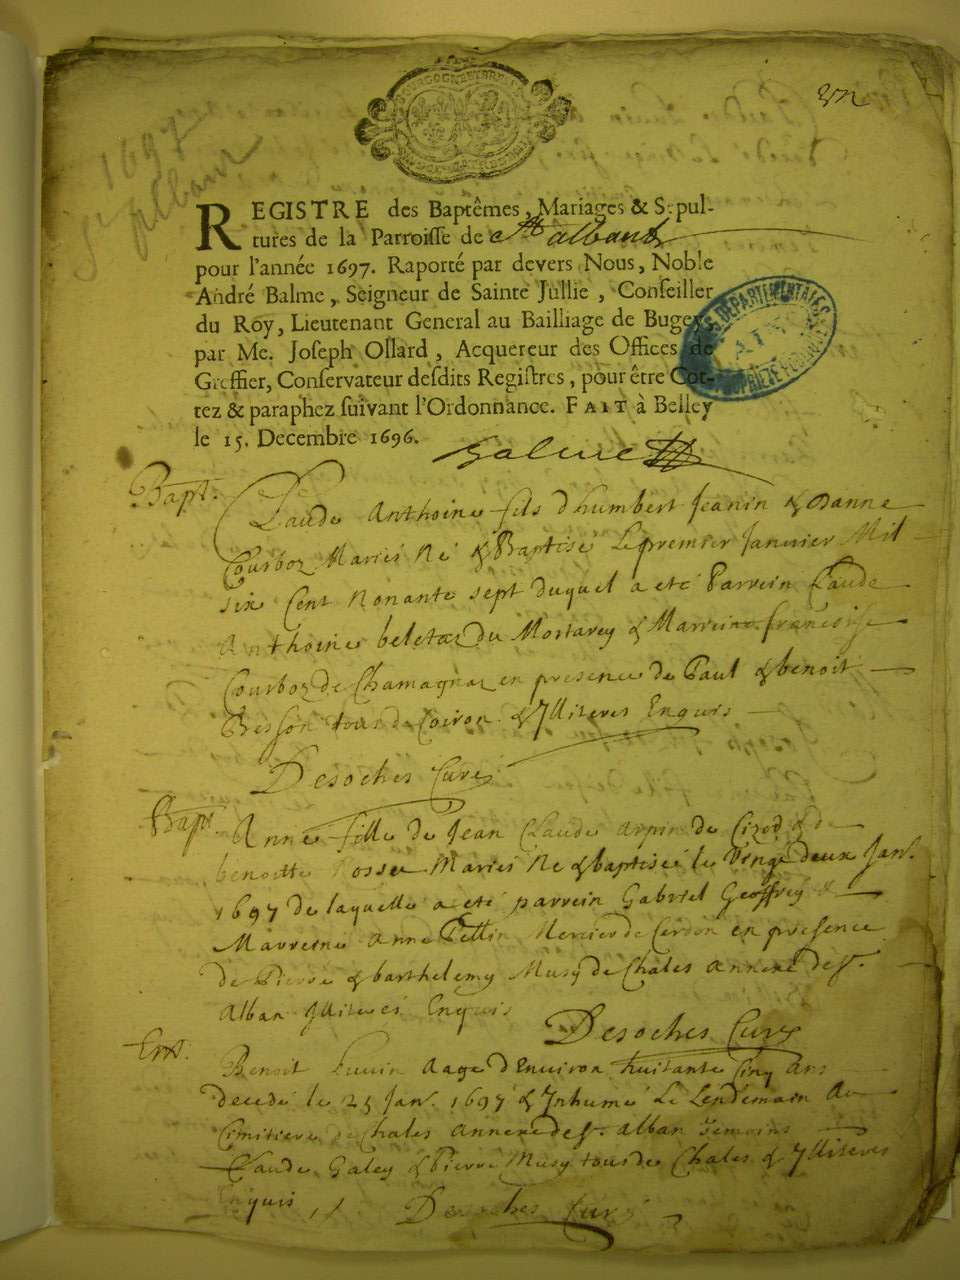 un
1697
St Alban
REGISTRE des Baptêmes, Mariages & Sepul-
tures de la Parroisse de St alban
pour l'année 1697. Raporté par devers Nous, Noble
André Balme, Seigneur de Sainte Jullie, Conseiller
du Roy, Lieutenant General au Bailliage de Bugey,
par Me. Joseph Ollard, Acquereur des Offices de
Greffier, Conservateur desdits Registres, pour être Cot-
tez & paraphez suivant l'Ordonnance. FAIT à Belley
le 15. Decembre 1696.
Balme
Bapt.
Claude Anthoine fils d'humbert Jeanin & danne
Courboz Mariés Né & Baptisé Le premier Janvier Mil
six Cent Nonante sept duquel a eté Parrein Claude
Anthoine du Mortarey & Marreine francoise
Courboz de Chamagnaz en presence de Paul & benoit
Besson tous de Coiron & Illiteres Enquis
Desoches Curé
Bapt
Anne fille de Jean Claude arpin de Cizod & de
benoitte Rosse Mariés Né & baptiseé le Vingt deux Janr.
1697 de laquelle a eté parrein Gabriel Geoffrey &
Marreine Anne Pellin Mercier de Cerdon en presence
de Pierre & barthelemy Musy de Chales Annexe de St.
Alban Illiterés Enquis
Desoches Curé
Ent.
Benoit Aage d'Environ huitante Cinq Ans
decedé le 25 Janr. 1697 & Inhumé Le Lendemain Au
Cimitiere de Chales annexe de St. alban temoins
Claude Galey & Pierre Musy tous de Chales & Illiteres
Enquis
Desoches Curé